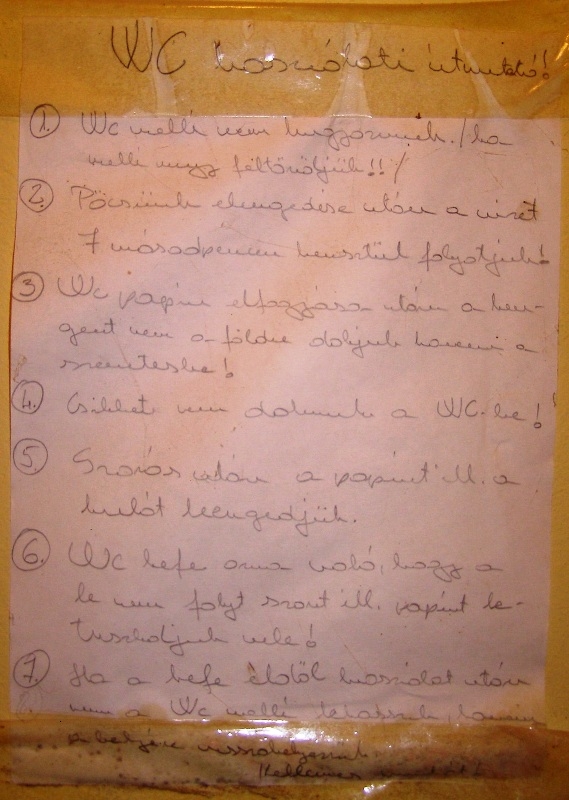 WC használati útmutató!
1. Wc mellé nem hugyozunk. /ha
mellé megy feltöröljük!! /
2. Pöcsünk elengedése után a vizet
7 másodpercen keresztül folyatjuk!
3 Wc papír elfogyása után a hen-
gert nem a földre dobjuk hanem a
szemetesbe!
4. Csikket nem dobunk a WC-be!
5. Szarás után a papírt ill. a
kulát leengedjük.
6. Wc kefe arra való, hogy a
le nem folyt szart ill. papírt le-
tuszkoljuk vele!
7. Ha a kefe eldől használat után
nem a Wc mellé lerakjuk, hanem
a helyére visszahelyezzük.
Kellemes